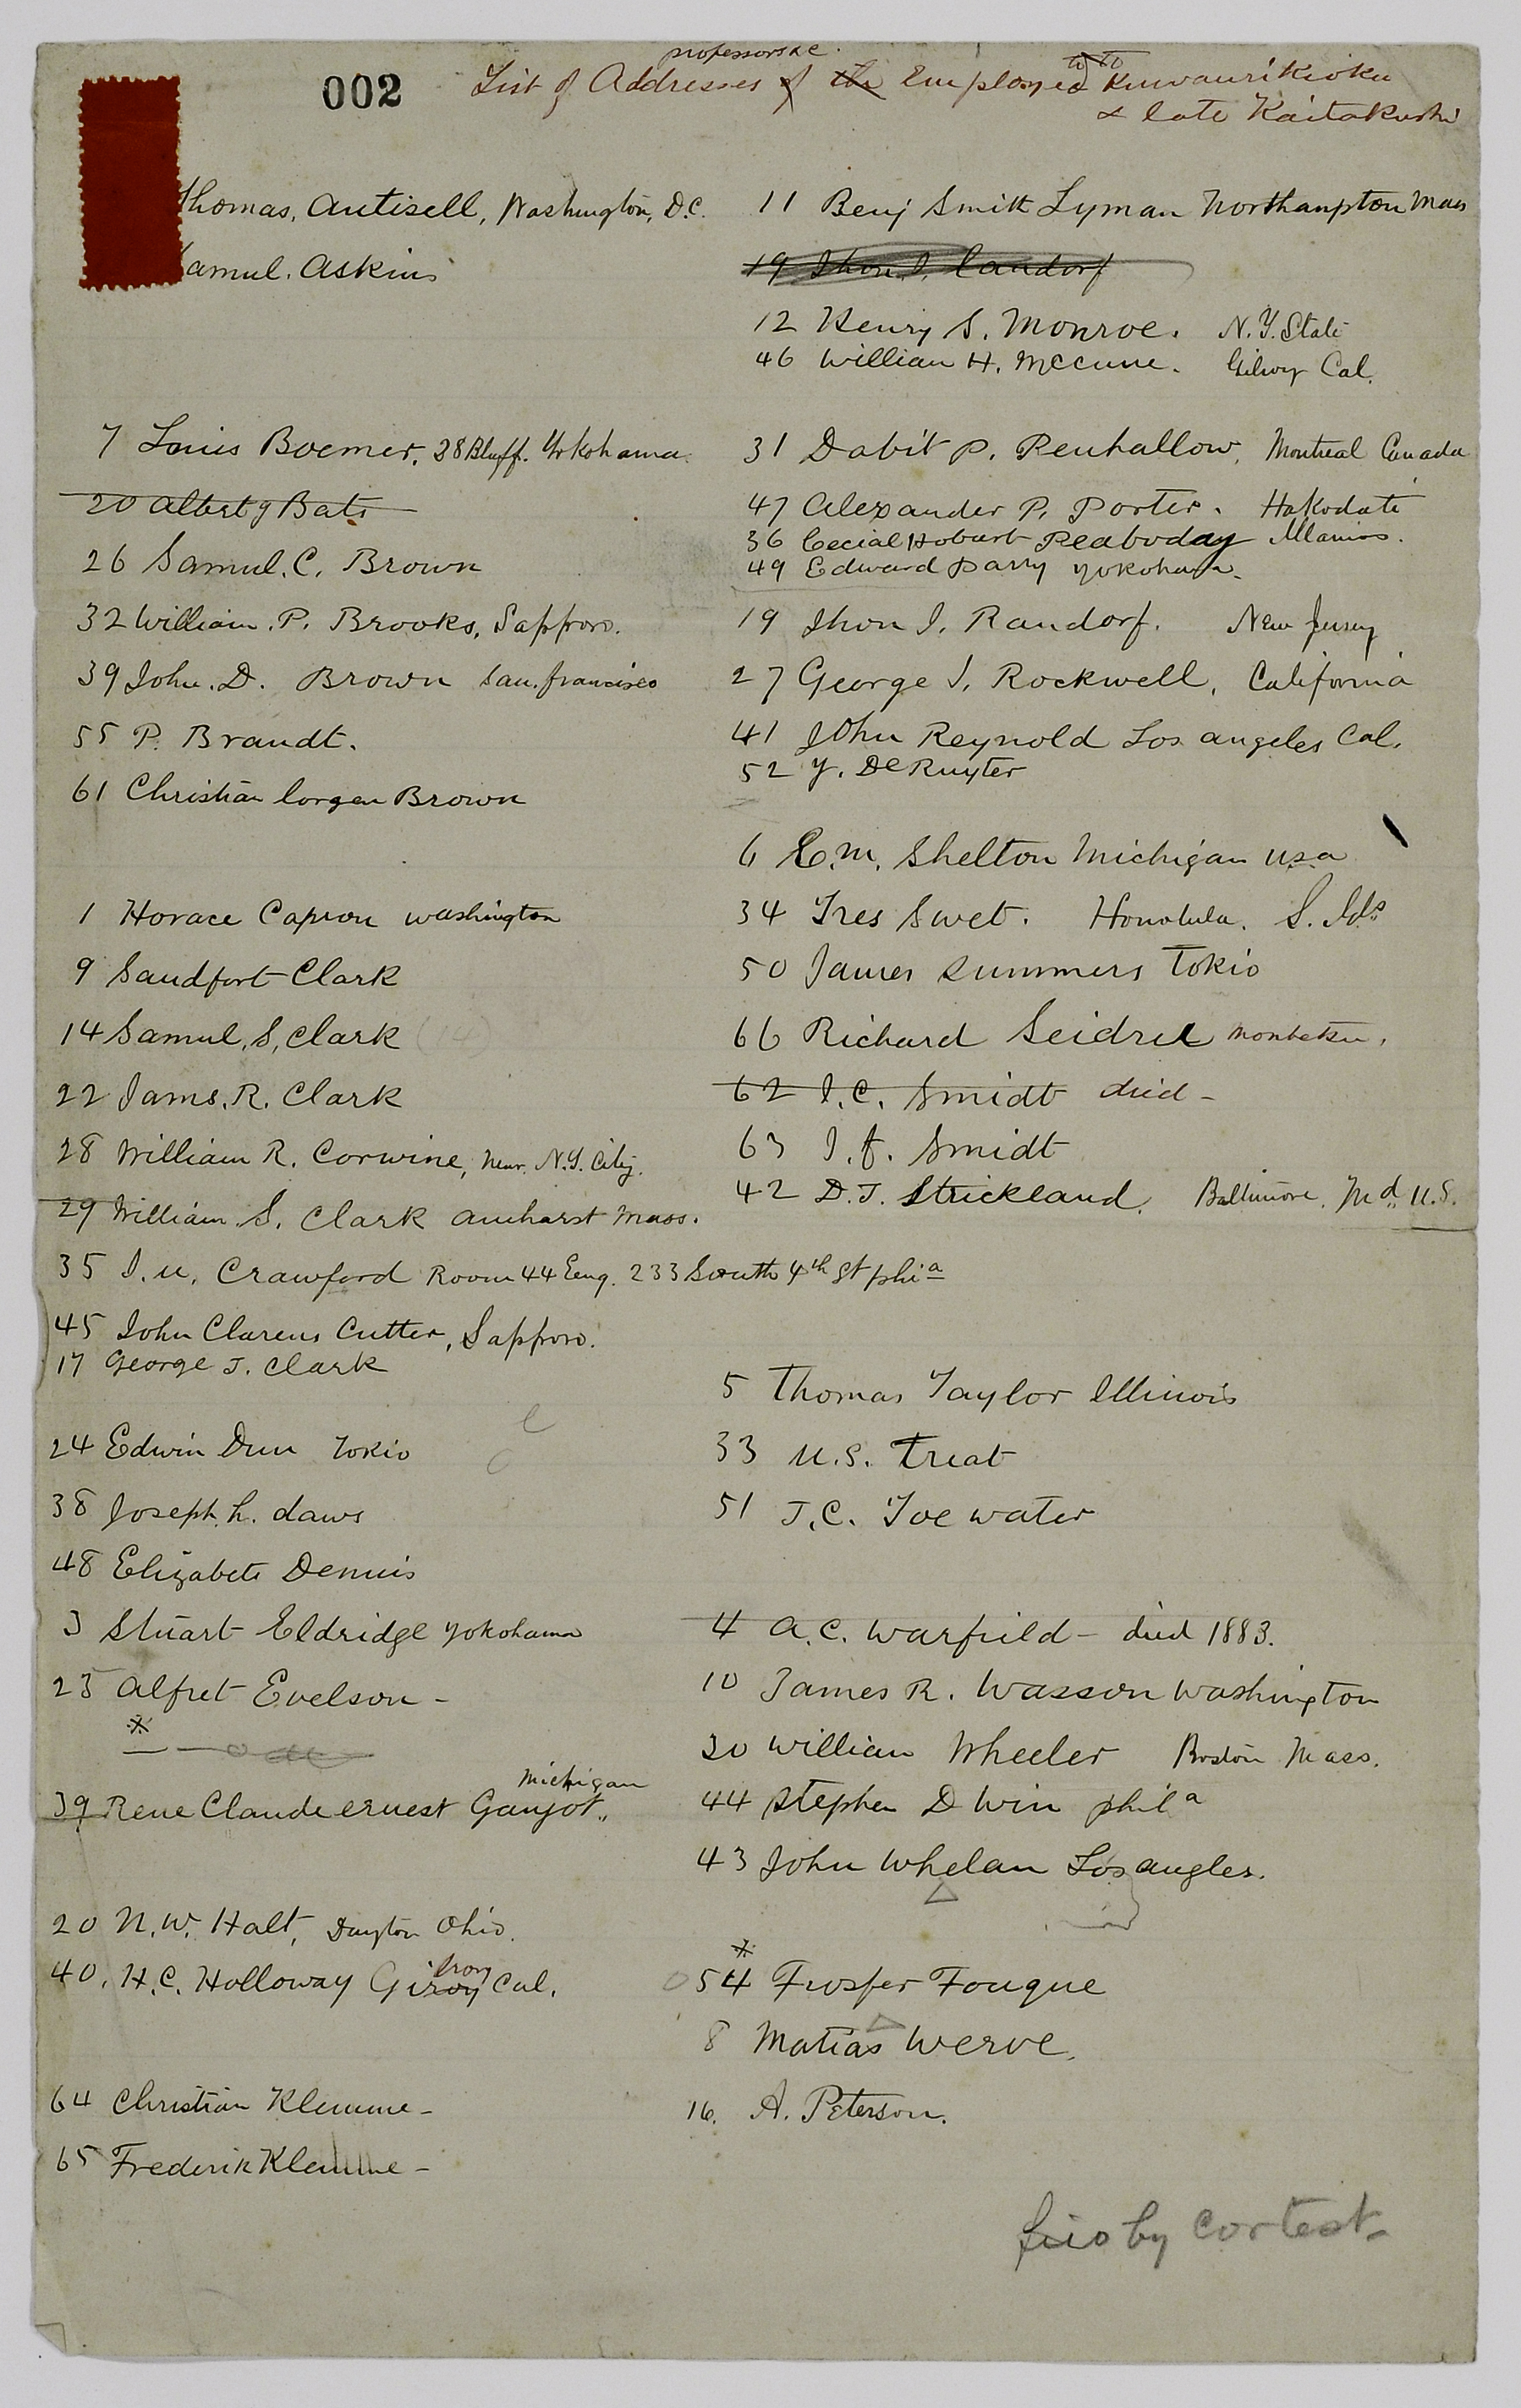 002
professors &c.
List of Addresses of the Employed to Kuwanrikioku
& late Kaitakushi
Thomas, Antisell, Washington, D.C.
Samul. Askins
7 Louis Boemer, 28 Bluff. Yokohama.
20 Albert g Bats
26 Samul. C. Brown
32 William. P. Brooks, Sapporo.
39 John. D. Brown San. francisco
55 P. Brandt.
61 Christian lorgen Brown
1 Horace Capron washington
9 Sandfort Clark
14 Samul. S. Clark (14)
22 Jams. R. Clark
28 William R. Corwine, near N.Y. City.
29 William S. Clark amharst Mass.
35 J. U. Crawford Room 44 Eng. 233 South 4th St phia
45 John Clarens Cutter, Sapporo.
17 George J. Clark
24 Edwin Dun Tokio
38 Joseph. h. daws
48 Elizabete Dennis
3 Stuart Eldridge yokohama
23 Alfret Evelson -
*
Michigan
39 Rene Claude ernest Ganjot.,
20 N. W. Halt, Dayton Ohio.
40. H. C. Holloway Giroy Cal.
64 Christian Klemme -
65 Frederik Klemme -
11 Benj Smith Lyman Northampton Mass
19 Jhon J. Landorf
12 Henry S. Monroe. N.Y. State
46 William H. McCune. Gilroy Cal.
31 Dabit P. Penhallow, Montreal Canada
47 Alexander P. Porter. Hakodate
36 Cecial Hobart Peaboday Illanios.
49 Edward Parry yokohama.
19 Jhon J. Randorf. New Jersey
27 George J. Rockwell, California
41 John Reynold Los angeles Cal.
52 Y. De Ruyter
6 E. M. Shelton Michigan usa
34 Ires Swet. Honolulu. S. Ids
50 James Summers Tokio
66 Richard Seidrel Monbetsu.
62 J. C. Smidt died -
63 J. f. Smidt
42 D. J. Strickland. Baltimore, Md. U.S.
5 Thomas Taylor Illinois
33 U. S. Treat
51 J. C. Toe water
4 A. C. Warfield - died 1883.
10 James R. Wasson Washington
30 William Wheeler Boston Mass.
44 Stephen D Win phila
43 John Whelan Los angles.
*
54 Frosfer Fouque
8 Matias Werve.
16. A. Peterson.